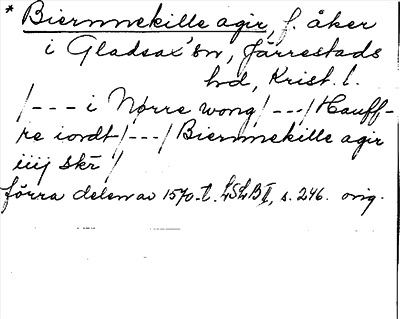 * Biernnekille agir, f. åker
i Gladsax' sn, Järrestads
hd, Krist. l.
/--- i Nørre wong/---/Hauff-
re iordt/---/Biernnekille agir
iiij skr /
förra delen av 1570-t. LSLB II, s. 246. orig.